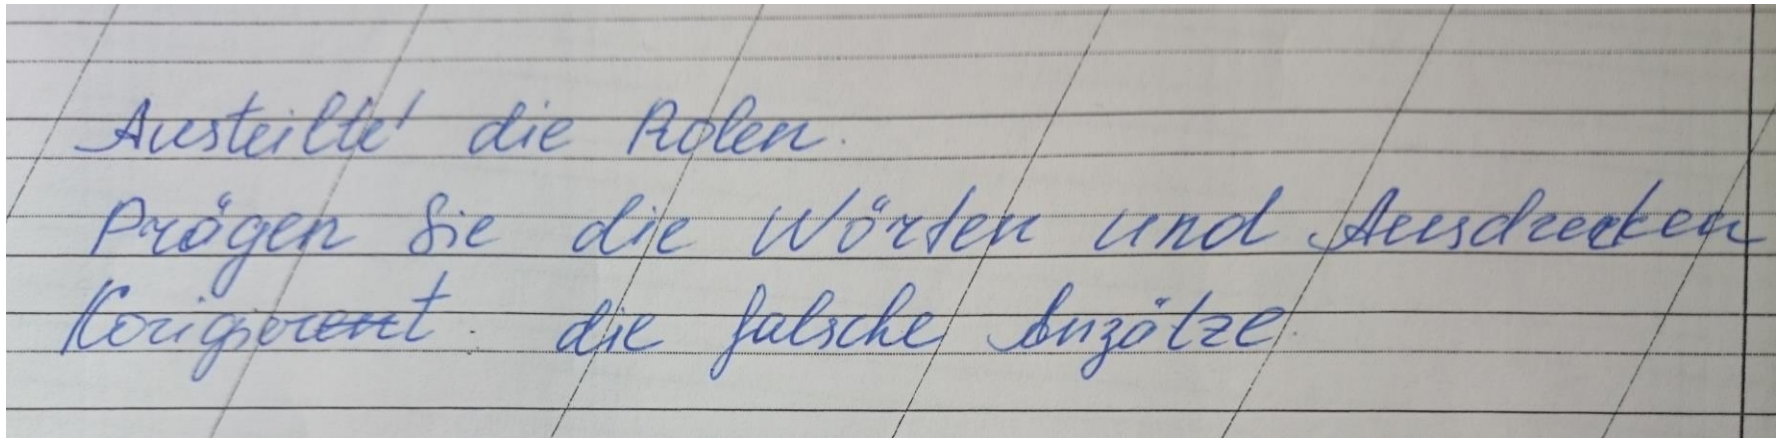 Austeilte' die Rolen.
Prägen Sie die Wörten und Ausdrucken
Korigierent die falsche Anzätze.